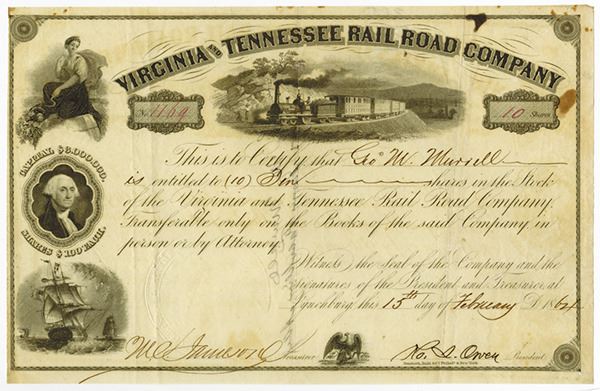 VIRGINIA AND TENNESSEE RAIL ROAD COMPANY
No 1169
10 Shares
CAPITAL $3,000,000.
SHARES $100 EACH.
This is to Certify that Geo. W. Murrell
is entitled to (10) Ten shares in the Stock
of the Virginia and Tennessee Rail Road Company,
Transferable only on the Books of the said Company, in
person or by Attorney.
Witness, the Seal of the Company and the
signatures of the President and Treasurer, at
Lynchburg, this 15th day of February 1864
Treasurer
Ro. L. Owen President